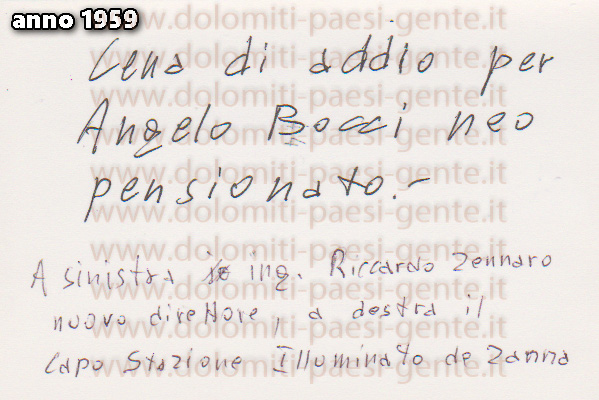 anno 1959
www.dolomiti-paesi-gente.it
Cena di addio per
Angelo Bocci neo
pensionato.-
A sinistra ing. Riccardo Zennaro
nuovo direttore, a destra il
Capo Stazione Illuminato de Zanna